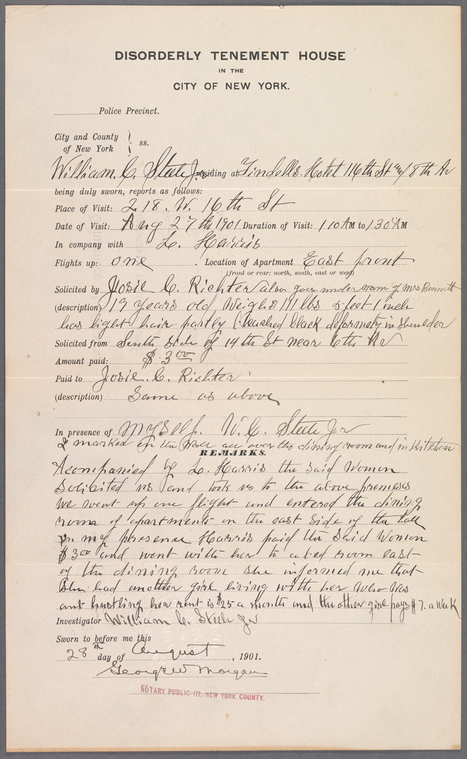 DISORDERLY TENEMENT HOUSE
IN THE
CITY OF NEW YORK.
Police Precinct.
City and County
of New York } ss.
William C. Steele Jr residing at Tindells Hotel 116th St & 8th Av
being duly sworn, reports as follows:
Place of Visit: 218. W. 16th St
Date of Visit: Aug 27th 1901 Duration of Visit: 1 10 AM to 1 30 AM
In company with L. Harris
Flights up: one . Location of Apartment East front
(front or rear: north, south, east or west)
Solicited by Josie C. Richter also goes under name of Mrs Bennett
(description) 19 years old, weighs 111 lbs 5 feet 1 inch
has light hair partly bleached black deformety in shoulder
Solicited from South Side of 14th St near 6th Av
Amount paid: $3 00
Paid to Josie. C. Richter
(description) Same as above
In presence of Myself. W. C. Steele Jr
I marked on the wall all over the dining room and in Kitchen
REMARKS.
Acompanied by L. Harris the said Women
Solicited us and took us to the above premises
we went up one flight and entered the dining
room of apartments on the east side of the hall
in my presence Harris paid the Said Women
$3 00 and went with her to a bed room east
of the dining room she informed me that
She had another girl living with her who was
out hustling her rent is $25 a month and the other girl pays $7. a week
Investigator William C. Steele Jr
Sworn to before me this
28th day of August , 1901.
George W Morgan
NOTARY PUBLIC NEW YORK COUNTY.